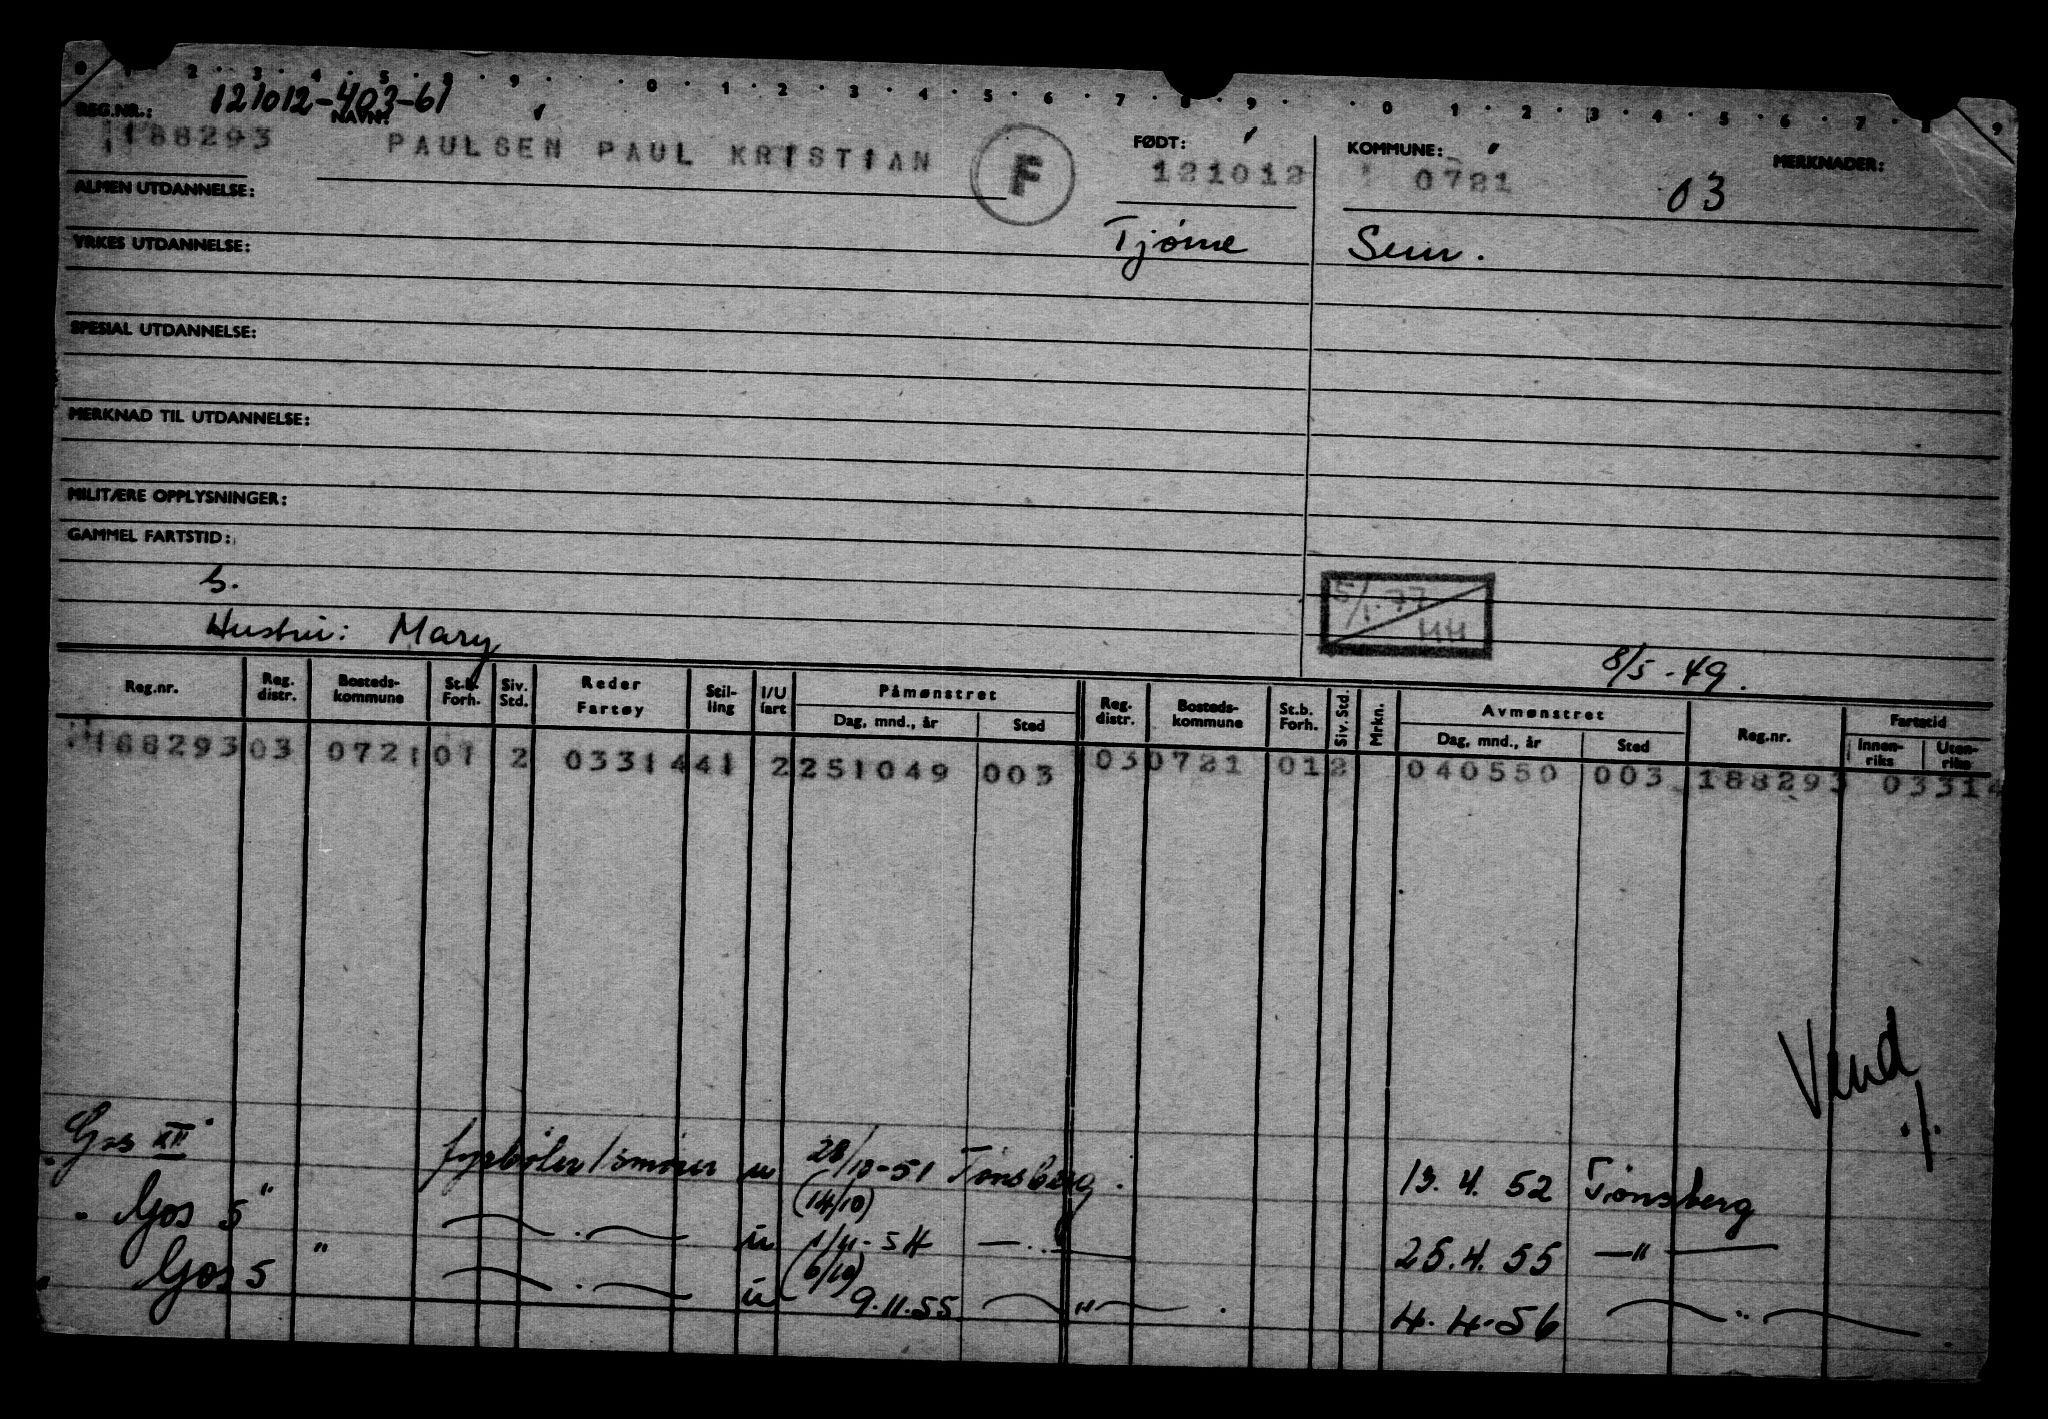 0 1 2 3 4 5 8 9 0 1 2 3 4 5 6 7 8 9 0 1 2 3 4 5 6 7 8 9
REG.NR.: 121012-403-61 NAVN: FØDT: KOMMUNE: MERKNADER:
188293 PAULSEN PAUL KRISTIAN F 121012 0721 03
ALMEN UTDANNELSE:
Tjøme Sem.
YRKES UTDANNELSE:
SPESIAL UTDANNELSE:
MERKNAD TIL UTDANNELSE:
MILITÆRE OPPLYSNINGER:
GAMMEL FARTSTID:
5/1.77
HH
Hustru: Mary
8/5-49.
Reg.nr. Reg. distr. Bosteds-kommune St.b. Forh. Siv. Std. Reder Fartøy Stil-ling I/U fart Påmønstret Dag, mnd., år Sted Reg. distr. Bosteds-kommune St.b. Forh. Siv. Std. Mrkn. Avmønstret Dag, mnd., år Sted Reg.nr. Fartstid Innen-riks Uten-riks
188293 03 0721 01 2 03314 41 2 251049 003 03 0721 01 2 040550 003 188293 03314
Vend
./.
Gos XII fyrbøter/smører u 28/10-51 Tønsberg. 13.4.52 Tønsberg
(14/10)
" Gos 5" — . — u 1/11-54 — " — 25.4.55 — " —
(6/10)
Gos 5 " — . — u 9.11.55 — " — 4.4.56 — " —